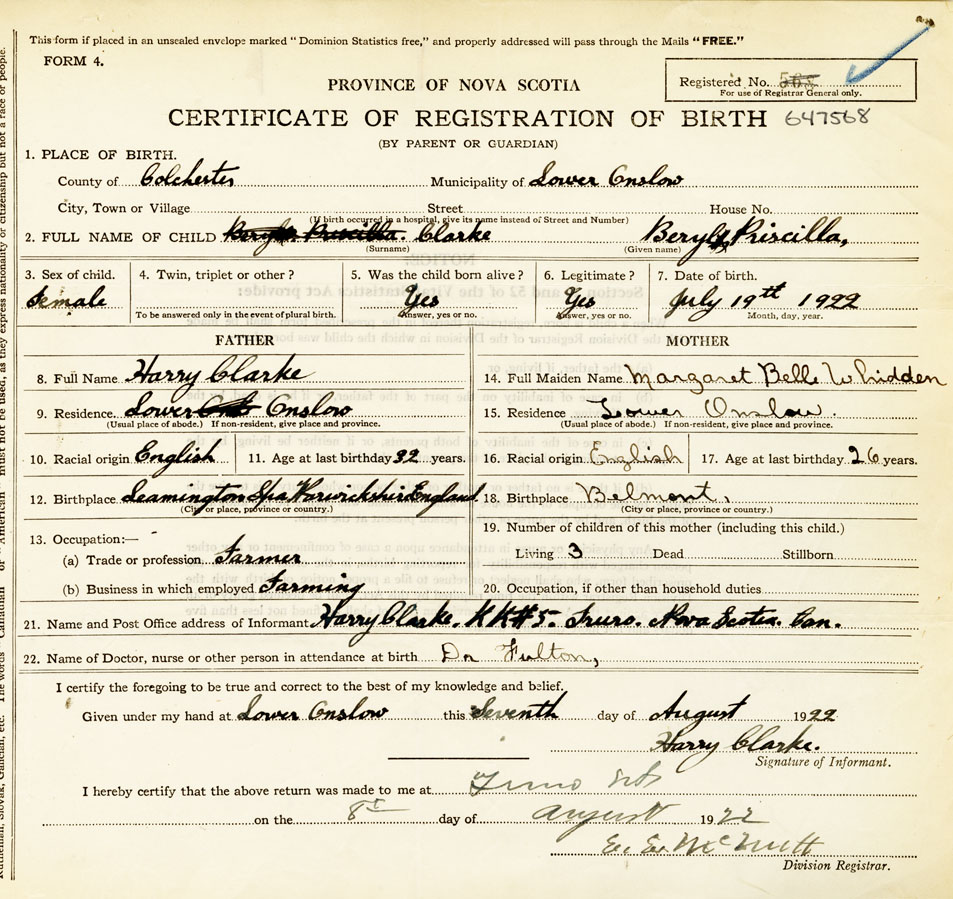 This form if placed in an unsealed envelope marked "Dominion Statistics free," and properly addressed will pass through the Mails "FREE."
FORM 4.
Registered No.
For use of Registrar General only.
PROVINCE OF NOVA SCOTIA
CERTIFICATE OF REGISTRATION OF BIRTH 647568
(BY PARENT OR GUARDIAN)
1. PLACE OF BIRTH.
County of Colchester Municipality of Lower Onslow
City, Town or Village Street House No.
(If birth occurred in a hospital, give its name instead of Street and Number)
2. FULL NAME OF CHILD Beryl Priscilla. Clarke Beryl Priscilla,
(Surname) (Given name)
3. Sex of child. 4. Twin, triplet or other? 5. Was the child born alive? 6. Legitimate? 7. Date of birth.
Female Yes Yes July 19th 1922
To be answered only in the event of plural birth. Answer, yes or no. Answer, yes or no. Month, day, year.
FATHER MOTHER
8. Full Name Harry Clarke 14. Full Maiden Name Margaret Belle Whidden
9. Residence Lower Onslow 15. Residence Lower Onslow.
(Usual place of abode.) If non-resident, give place and province. (Usual place of abode.) If non-resident, give place and province.
10. Racial origin English 11. Age at last birthday 32 years. 16. Racial origin English 17. Age at last birthday 26 years.
12. Birthplace Leamington Spa Warwickshire England 18. Birthplace Belmont,
(City or place, province or country.) (City or place, province or country.)
13. Occupation:— 19. Number of children of this mother (including this child.)
(a) Trade or profession Farmer Living 3 Dead Stillborn
(b) Business in which employed Farming 20. Occupation, if other than household duties
21. Name and Post Office address of Informant Harry Clarke. RR#5- Truro. Nova Scotia. Can.
22. Name of Doctor, nurse or other person in attendance at birth Dr Fulton,
I certify the foregoing to be true and correct to the best of my knowledge and belief.
Given under my hand at Lower Onslow this Seventh day of August 1922
Harry Clarke.
Signature of Informant.
I hereby certify that the above return was made to me at Truro NS
on the 8th day of August 1922
McNutt
Division Registrar.